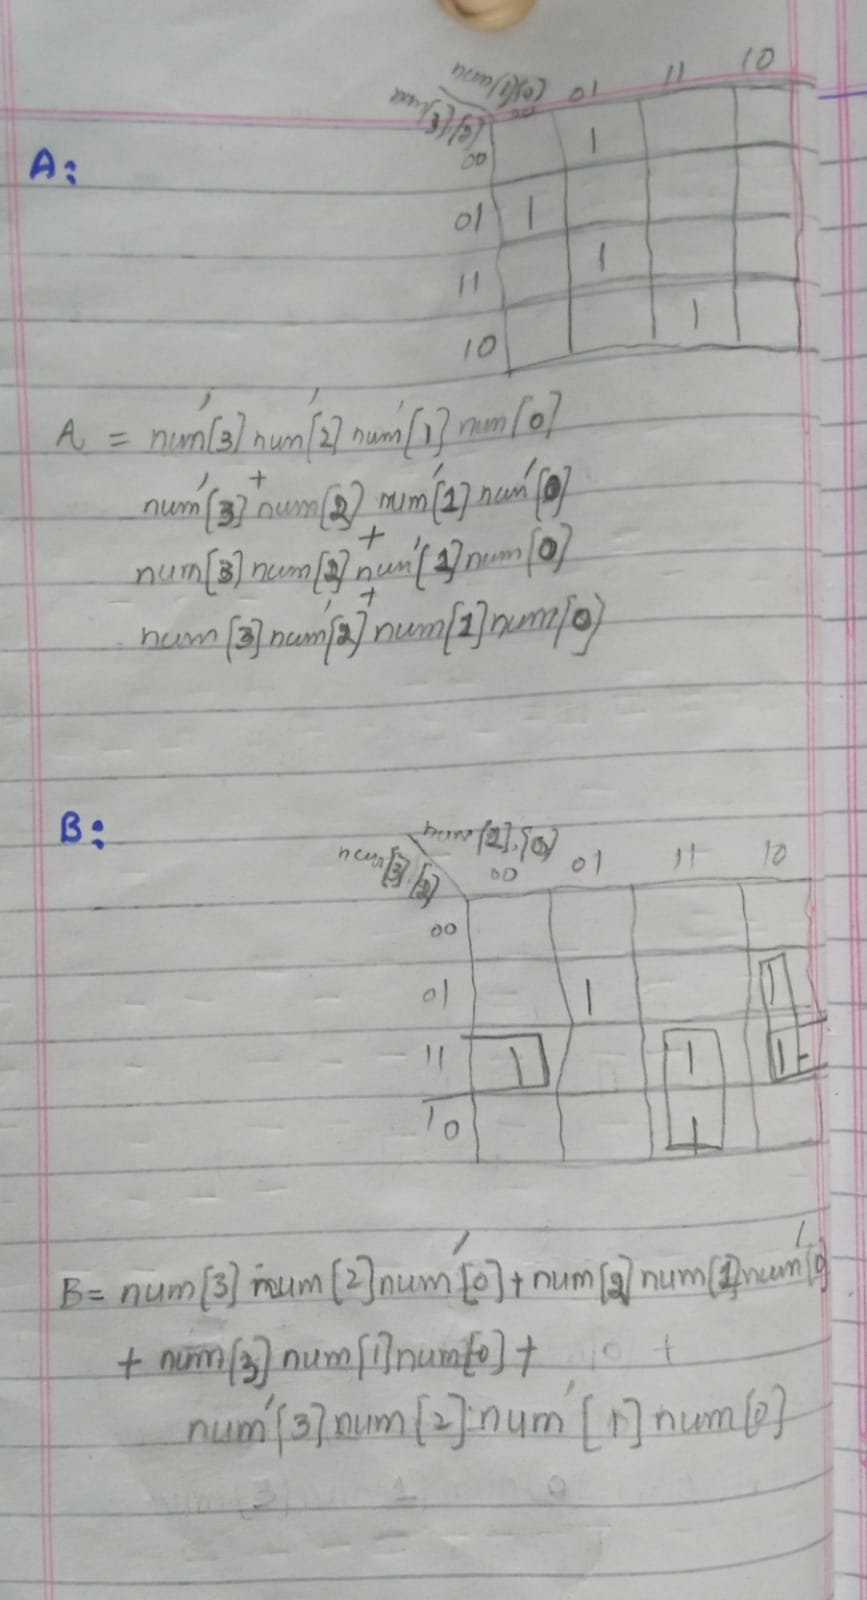 A:
num[1][0]
num[3][2]
00 01 11 10
00 1
01 1
11 1
10 1
A = num'[3] num'[2] num'[1] num[0]
+
num'[3] num[2] num'[1] num'[0]
+
num[3] num[2] num'[1] num[0]
+
num[3] num'[2] num[1] num[0]
B:
num[1],[0]
num[3],[2]
00 01 11 10
00
01 1 1
11 1 1 1
10 1
B = num[3] num[2] num'[0] + num[2] num[1] num'[0]
+ num[3] num[1] num[0] +
num'[3] num[2] num'[1] num[0]